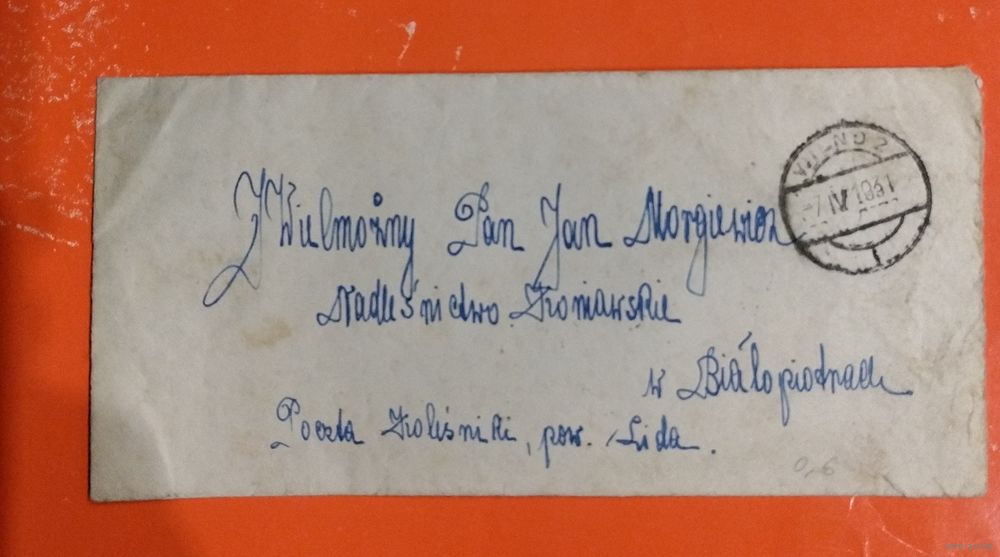 JWielmożny Pan Jan Morgiewicz
Nadleśnictwo Koniawskie
w Białopiotrach
Poczta Koleśniki, pow. Lida.
WILNO 2
-7 IV 1931
0,6